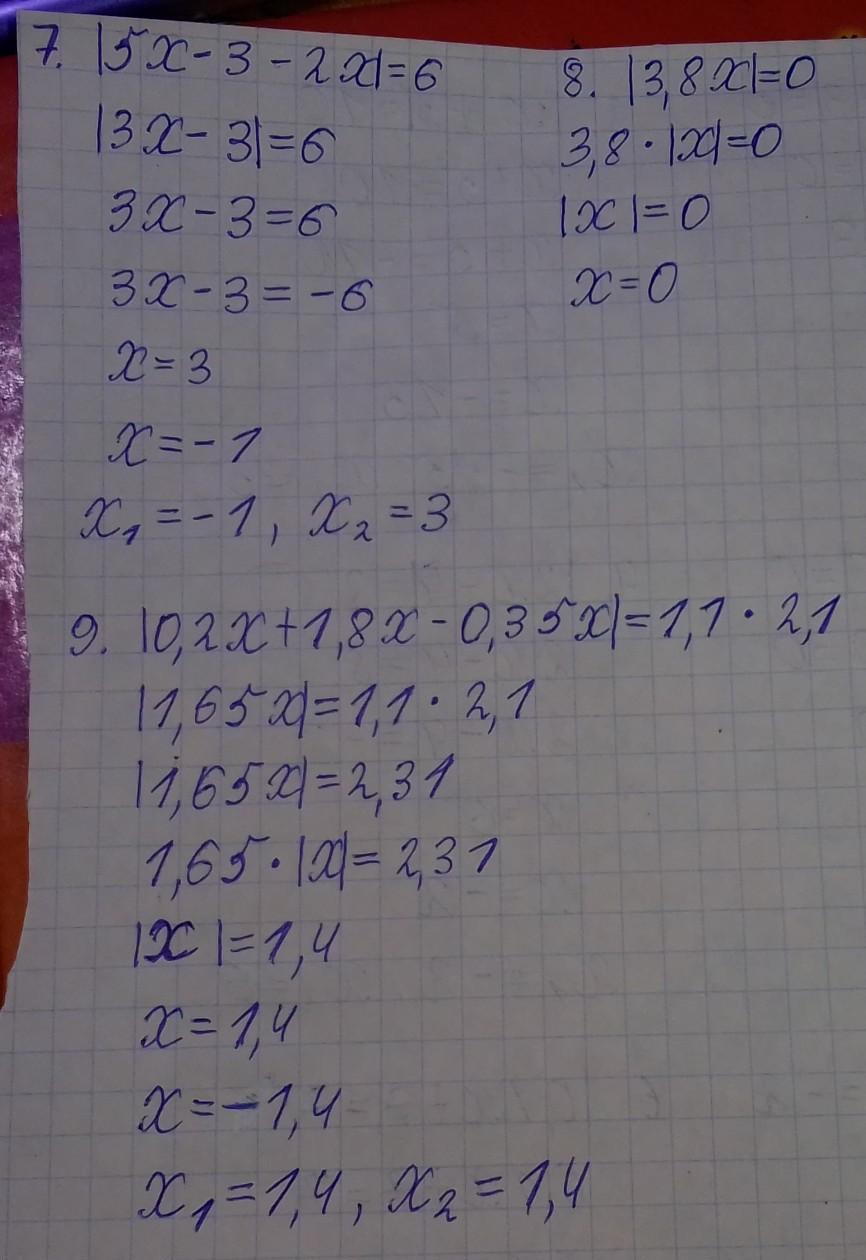 7. |5x-3-2x|=6
|3x-3|=6
3x-3=6
3x-3=-6
x=3
x=-1
x₁=-1, x₂=3
8. |3,8x|=0
3,8·|x|=0
|x|=0
x=0
9. |0,2x+1,8x-0,35x|=1,1·2,1
|1,65x|=1,1·2,1
|1,65x|=2,31
1,65·|x|=2,31
|x|=1,4
x=1,4
x=-1,4
x₁=1,4, x₂=1,4